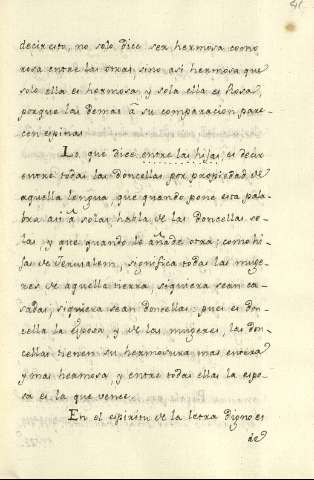 41.
decir esto, no solo dice ser hermosa como
rosa entre las otras, sino asi hermosa que
solo ella es hermosa, y sola ella es Rosa,
porque las demas â su comparacion pare-
cen espinas
Lo que dice entre las hijas, es decir
entre todas las doncellas por propiedad de
aquella lengua, que quando pone esta pala-
bra asi â solas, habla de las doncellas so-
las, y que quando le añade otra; como hi-
jas de Jerusalem, significa todas las muge-
res de aquella tierra, siquiera sean ca-
sadas, siquiera sean doncellas: pues es don-
cella la esposa, y de las mugeres, las don-
cellas tienen su hermosura mas entera
y mas hermosa, y entre todas ellas la espo-
sa es la que vence.
En el espiritu de la letra digno es
de